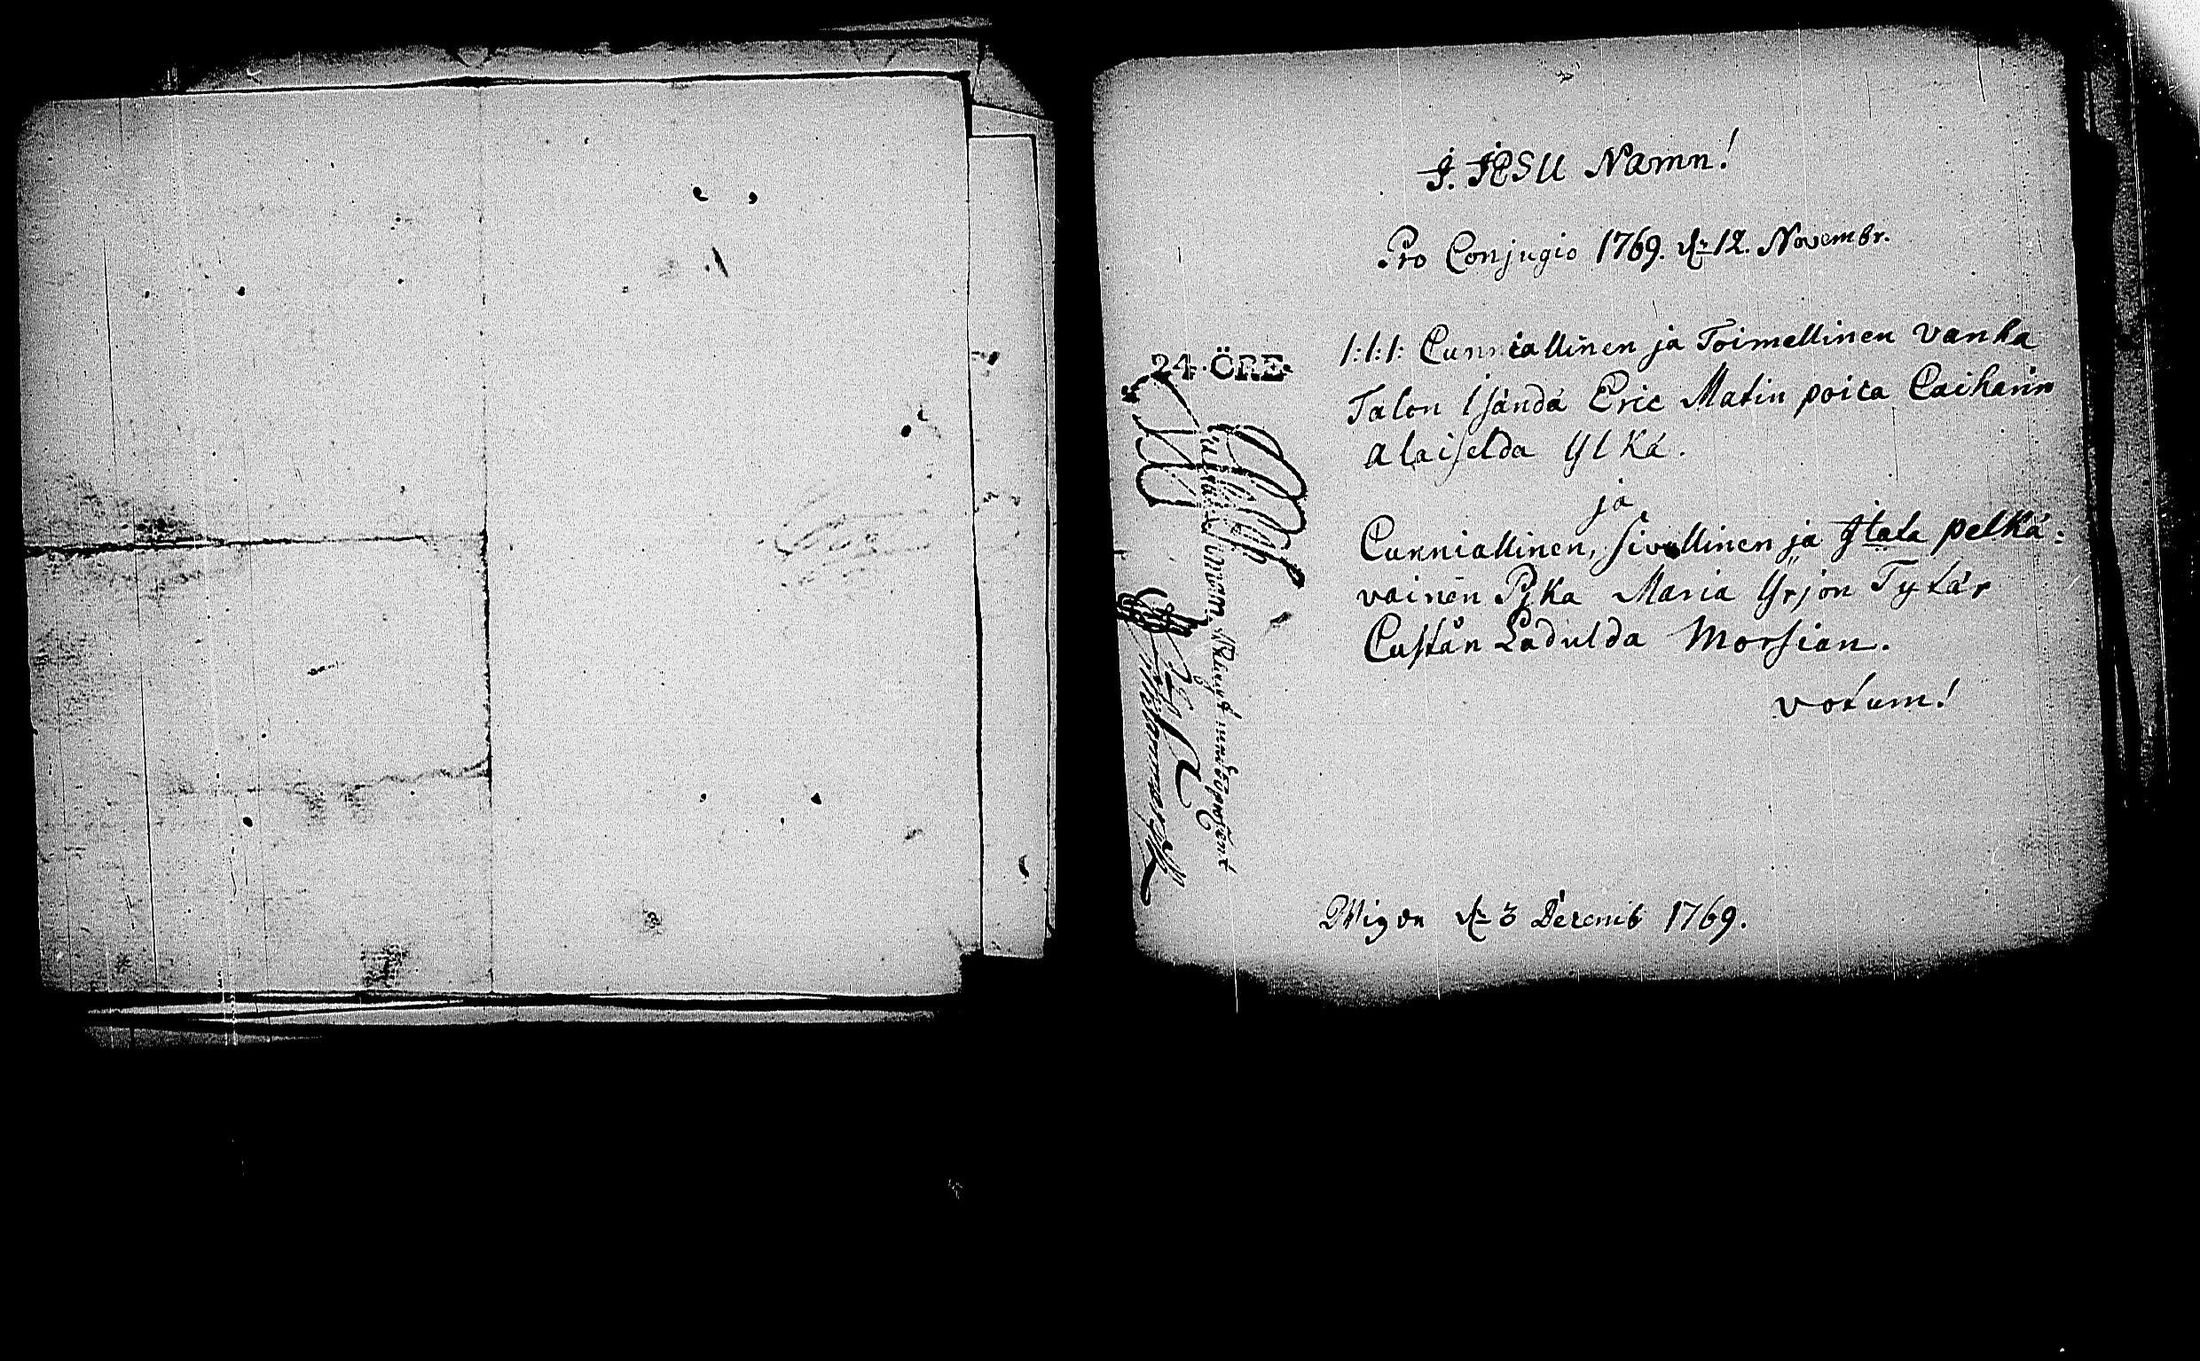 J. JESU Namn!
Pro Conjugio 1769. d. 12. Novembr.
1:1:1: Cunniallinen ja Toimellinen vanha
Talon Isändä Eric Matin poica Caiharin
alaiselda Ylkä.
ja
Cunniallinen, sivellinen ja Jlala pelkä:
vainen Pjka Maria Yrjön Tytär
Custån Ladulda Morsian.
votum!
Wigde d. 3 Decemb 1769.
24 ÖRE.